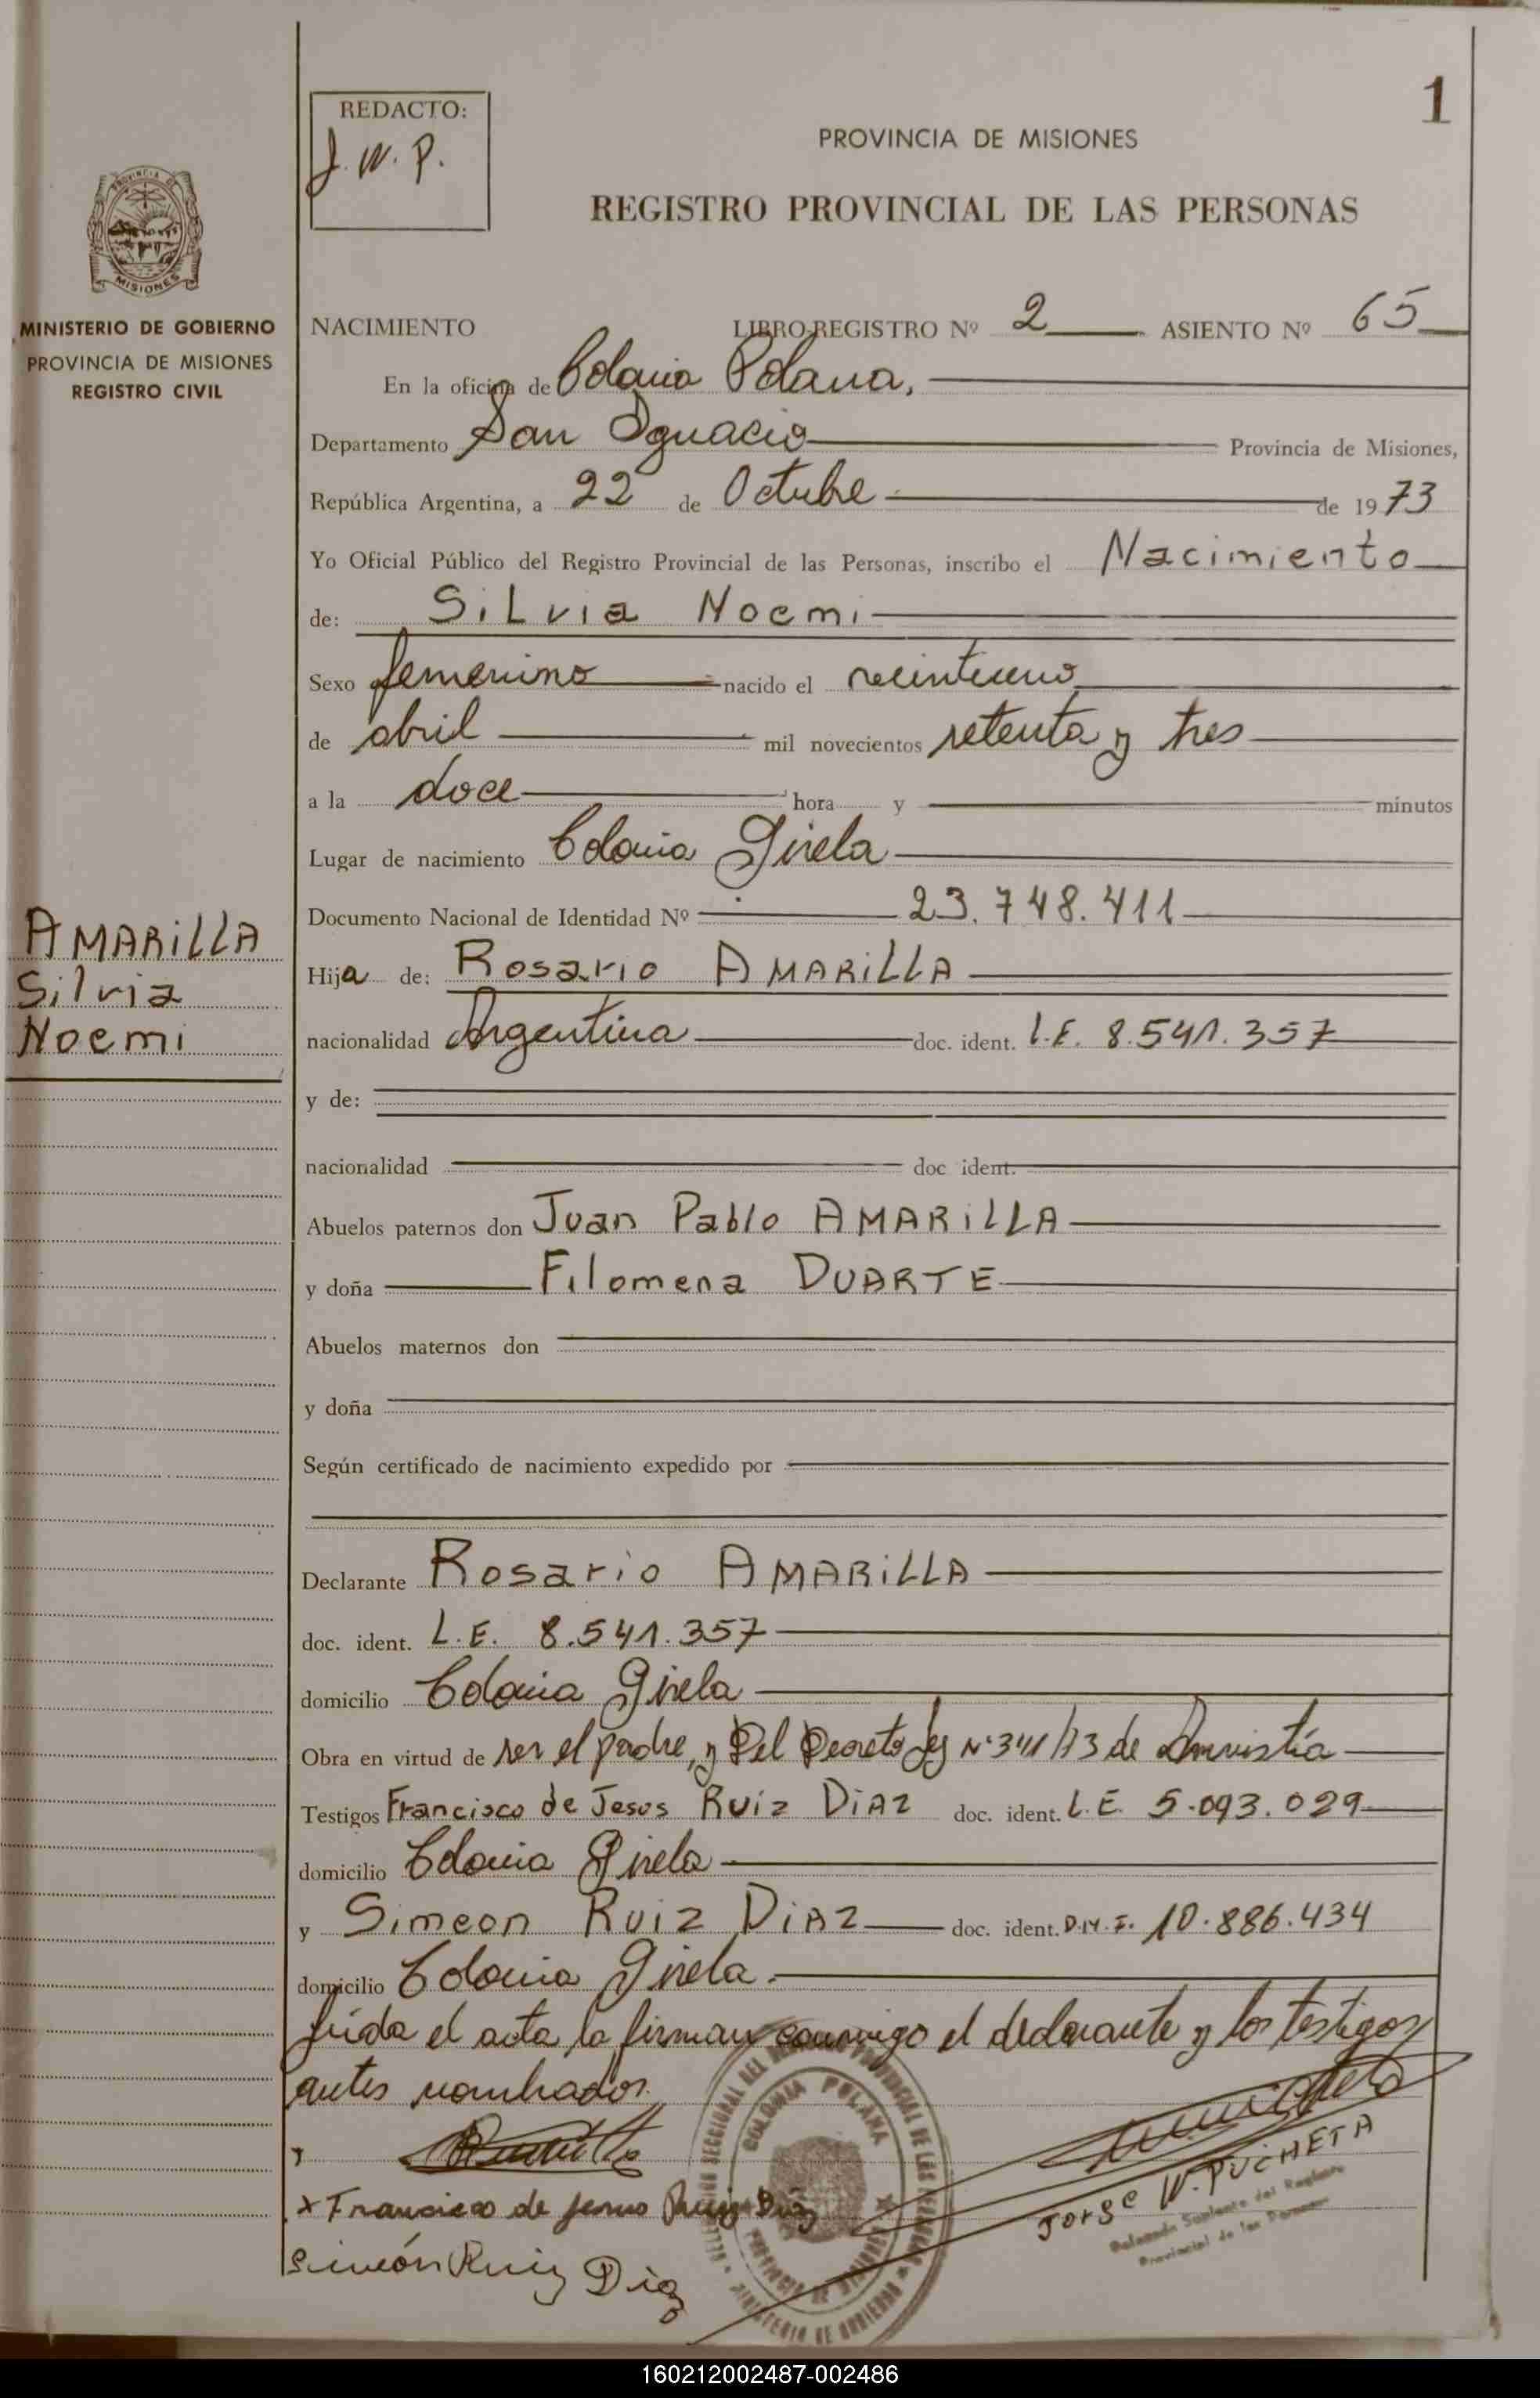 1
REDACTO:
J. W. P.
PROVINCIA DE MISIONES
REGISTRO PROVINCIAL DE LAS PERSONAS
PROVINCIA DE
MISIONES
MINISTERIO DE GOBIERNO
PROVINCIA DE MISIONES
REGISTRO CIVIL
NACIMIENTO LIBRO REGISTRO Nº 2 ASIENTO Nº 65
En la oficina de Colonia Polana,
Departamento San Ignacio Provincia de Misiones,
República Argentina, a 22 de Octubre de 1973
Yo Oficial Público del Registro Provincial de las Personas, inscribo el Nacimiento
de: SiLvia Noemi
Sexo femenino nacido el veintiuno
de abril mil novecientos setenta y tres
a la doce hora y minutos
Lugar de nacimiento Colonia Gisela
Documento Nacional de Identidad Nº 23.748.411
AMARiLLA
Silvia
Noemi
Hija de: Rosario AMARiLLA
nacionalidad Argentina doc. ident. L.E. 8.541.357
y de:
nacionalidad doc ident.
Abuelos paternos don Juan Pablo AMARiLLA
y doña Filomena DUARTE
Abuelos maternos don
y doña
Según certificado de nacimiento expedido por
Declarante Rosario AMARiLLA
doc. ident. L.E. 8.541.357
domicilio Colonia Gisela
Obra en virtud de ser el padre, y Del Decreto Ley Nº 341/73 de Amnistía
Testigos Francisco de Jesus Ruiz DiAz doc. ident. L.E. 5.093.029
domicilio Colonia Gisela
y Simeon Ruiz DiAz doc. ident. D.N.I. 10.886.434
domicilio Colonia Gisela.
Leída el acta la firman conmigo el declarante y los testigos
antes nombrados.
x Francisco de Jesus Ruiz Diaz
Simeón Ruiz Diaz
COLONIA POLANA
PROVINCIA DE MISIONES
MINISTERIO DE GOBIERNO
Jorge W. PUCHETA
Delegado Suplente del Registro
Provincial de las Personas
160212002487-002486